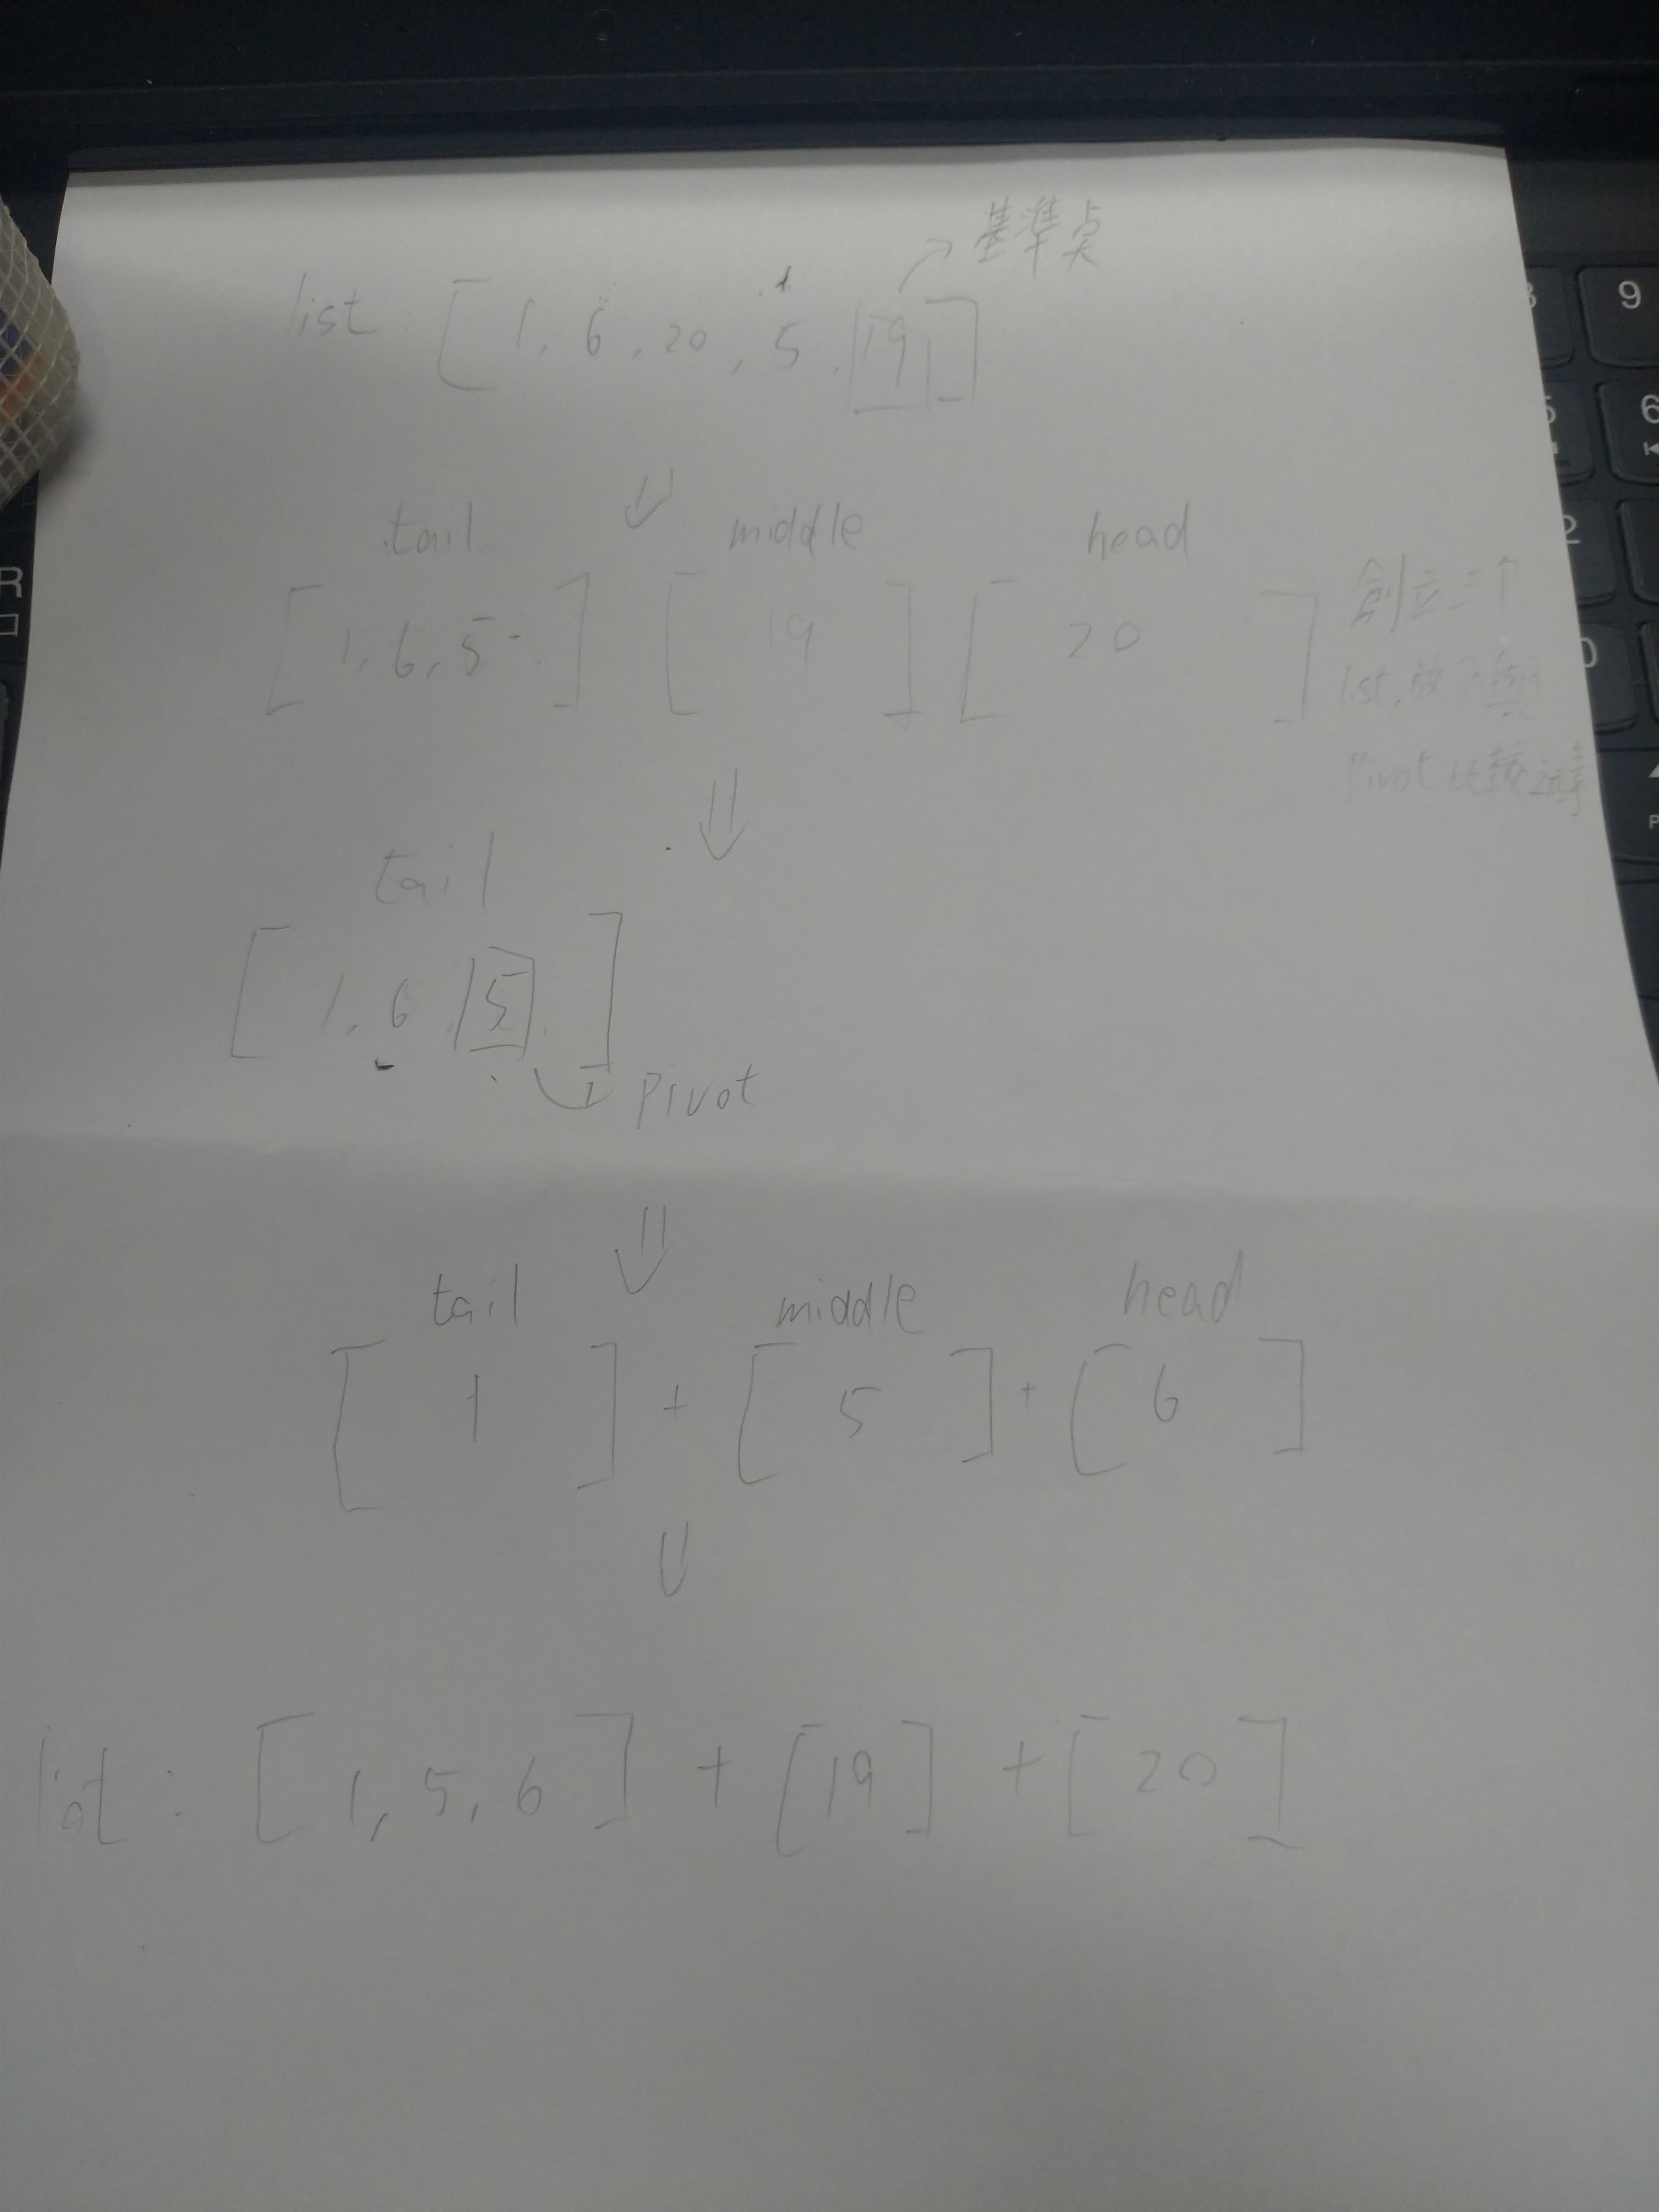 基準点
list [ 1, 6, 20, 5, 19 ]
tail middle head
[ 1, 6, 5 ] [ 19 ] [ 20 ]
創立三个
list, 放了與
Pivot比較
tail
[ 1, 6, 5 ]
Pivot
tail middle head
[ 1 ] + [ 5 ] + [ 6 ]
list : [ 1, 5, 6 ] + [ 19 ] + [ 20 ]
R
9
6